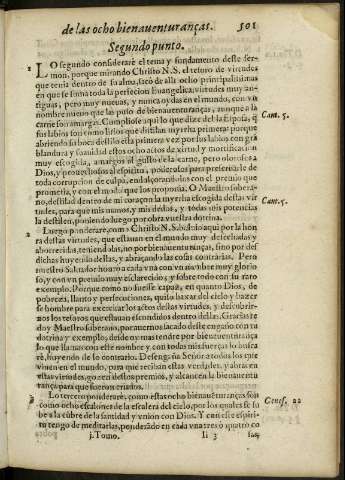 de las ocho bienauenturanças. 501
Segundo punto.
1 LO segundo considerarè el tema y fundamento deste ser-
mon, porque mirando Christo N.S. el tesoro de virtudes
que tenia dentro de su alma, sacò de alli ocho principalissimas
en que se suma toda la perfeccion Euangelica, virtudes muy an-
tiguas, pero muy nueuas, y nunca oydas en el mundo, con vn
nombre nueuo que las puso de bienauenturanças, aunque a la
carne son amargas. Cumpliose aqui lo que dize de el la Esposa, q̃ Cant. 5.
sus labios son como lirios que distilan myrrha primera: porque
abriendo su boca destilò esta primera vez por sus labios con grã
blandura y suauidad estos ocho actos de virtud y mortificacion
muy escogida, amargos al gusto de la carne, pero olorosos a
Dios, y prouechosos al espiritu, poderosos para preseruarle de
toda corrupcion de culpa, endulçorandolos con el premio que
prometia, y con el modo que los proponia. O Maestro sobera-
no, destilad dentro de mi coraçon la myrrha escogida destas vir- Cant. 5.
tudes, para que mis manos, y mis dedos, y todas mis potencias
la destilen, poniendo luego por obra vuestra dotrina.
2 Luego ponderarè, como Christo N.S. boluio aqui por la hon
ra destas virtudes, que estauan en el mundo muy desechadas y
aborrecidas, teniendolas, no por bienauenturanças, sino por des
dichas huyendo dellas, y abraçando las cosas contrarias. Pero
nuestro Saluador honrò a cada vna con vn nombre muy glorio
so, y con vn premio muy esclarecido, y sobre todo con su raro
exemplo. Porque como no fuesse capaz, en quanto Dios, de
pobreza, llanto y persecuciones, quiso baxar del cielo y hazer
se hombre para exercitar los actos destas virtudes, y descubrir-
nos los tesoros que estauan escondidos dentro dellas. Gracias te
doy Maestro soberano, por auernos sacado deste engaño con tu
dotrina y exemplo, desde oy mas tendre por bienauenturança
lo que llamas con este nombre y con todas mis fuerças lo busca
rè, huyendo de lo contrario. Desengaña Señor a todos los que
viuen en el mundo, para que reciban estas verdades, y abracen
estas virtudes, gozen destos premios, y alcancen la bienauentu
rança para que fueron criados.
3 Lo tercero ponderarè, como estas ocho bienauenturanças son
como ocho escalones de la escalera del cielo, por los quales se su Genes. 22
be a la cũbre de la santidad y vnion con Dios. Y con este espiri-
tu tengo de meditarlas, ponderando en cada vna tres ò quatro co
j. Tomo. Ii 3 sas,